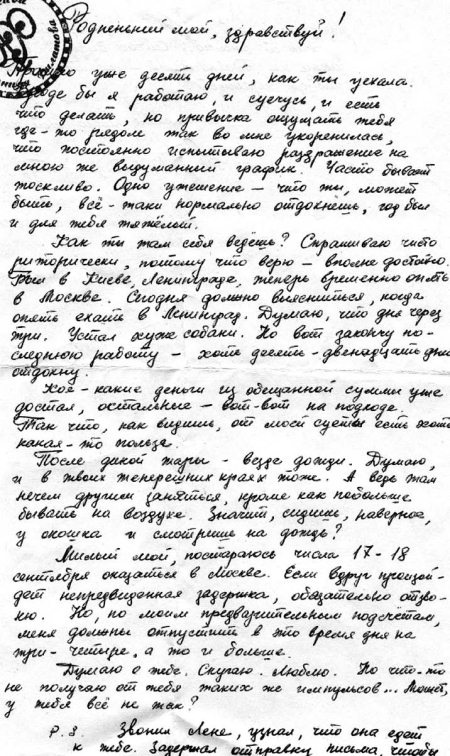 Родненький мой, здравствуй!
Прошло уже десять дней, как ты уехала.
Вроде бы я работаю, и суечусь, и есть
что делать, но привычка ощущать тебя
где-то рядом так во мне укоренилась,
что постоянно испытываю раздражение на
мною же выдуманный график. Часто бывает
тоскливо. Одно утешение – что ты, может
быть, всё-таки нормально отдохнёшь, год был
и для тебя тяжёлый.
Как ты там себя ведёшь? Спрашиваю чисто
риторически, потому что верю – вполне достойно.
Был в Киеве, Ленинграде, теперь временно опять
в Москве. Сегодня должно выясниться, когда
опять ехать в Ленинград. Думаю, что дня через
три. Устал хуже собаки. Но вот закончу по-
следнюю работу – хоть десять-двенадцать дней
отдохну.
Кое-какие деньги из обещанной суммы уже
достал, остальные – вот-вот на подходе.
Так что, как видишь, от моей суеты есть хоть
какая-то польза.
После дикой жары – везде дожди. Думаю,
и в твоих теперешних краях тоже. А ведь там
нечем другим заняться, кроме как побольше
бывать на воздухе. Значит, сидишь, наверное,
у окошка и смотришь на дождь?
Милый мой, постараюсь числа 17-18
сентября оказаться в Москве. Если вдруг произой-
дёт непредвиденная задержка, обязательно отзво-
ню. Но, по моим предварительным подсчётам,
меня должны отпустить в это время дня на
три-четыре, а то и больше.
Думаю о тебе. Скучаю. Люблю. Но что-то
не получаю от тебя таких же импульсов... Может,
у тебя всё не так?
P.S. Звонил Лене, узнал, что она едет
к тебе. Задержал отправку письма, чтобы